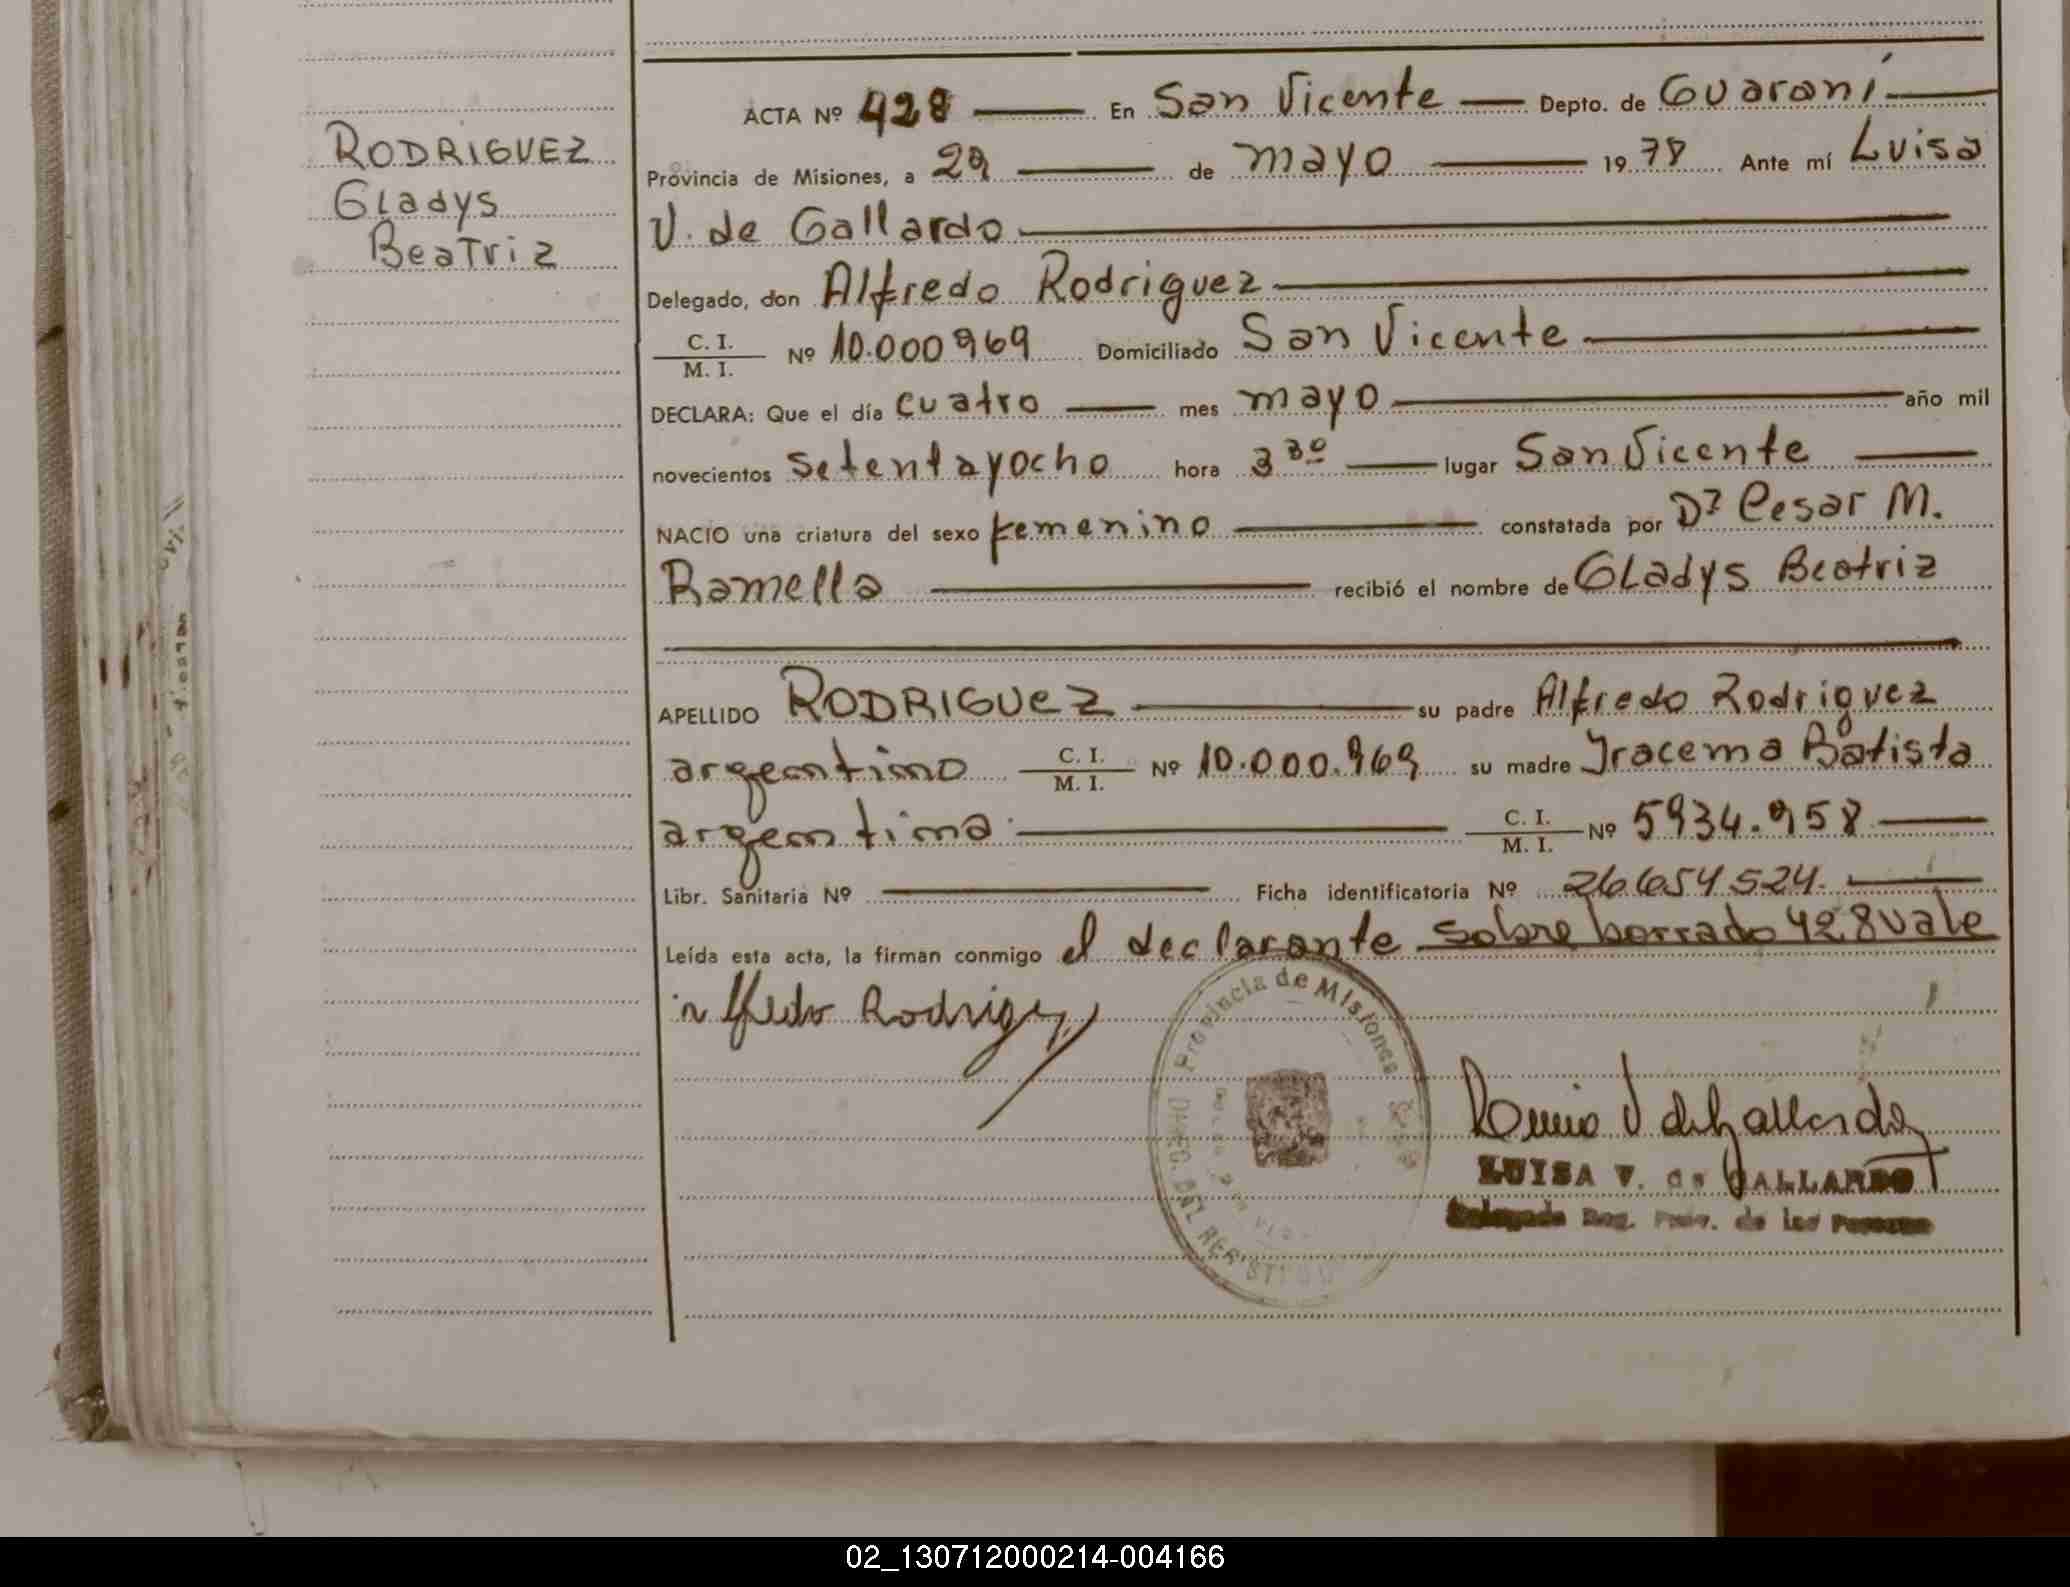 RODRIGUEZ
Gladys
Beatriz
ACTA Nº 428 En San Vicente Depto. de Guaraní
Provincia de Misiones, a 29 de mayo 1978 Ante mí Luisa
V. de Gallardo
Delegado, don Alfredo Rodriguez
C. I.
M. I. Nº 10.000969 Domiciliado San Vicente
DECLARA: Que el día cuatro mes mayo año mil
novecientos setentayocho hora 3 30 lugar San Vicente
NACIO una criatura del sexo femenino constatada por Dr Cesar M.
Ramella recibió el nombre de Gladys Beatriz
APELLIDO RODRIGUEZ su padre Alfredo Rodriguez
argentino C. I. M. I. Nº 10.000.969 su madre Iracema Batista
argentina C. I. M. I. Nº 5934.958
Libr. Sanitaria Nº Ficha identificatoria Nº 26654524.
Leída esta acta, la firman conmigo el declarante sobre borrado 428 vale
Alfredo Rodriguez
Provincia de Misiones
DIREC. DEL REGISTRO
V de Gallardo
LUISA V. de GALLARDO
Delegada Reg. Prov. de las Personas
02_130712000214-004166